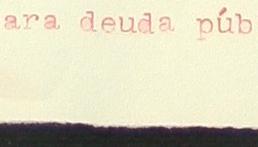 ara deuda púb